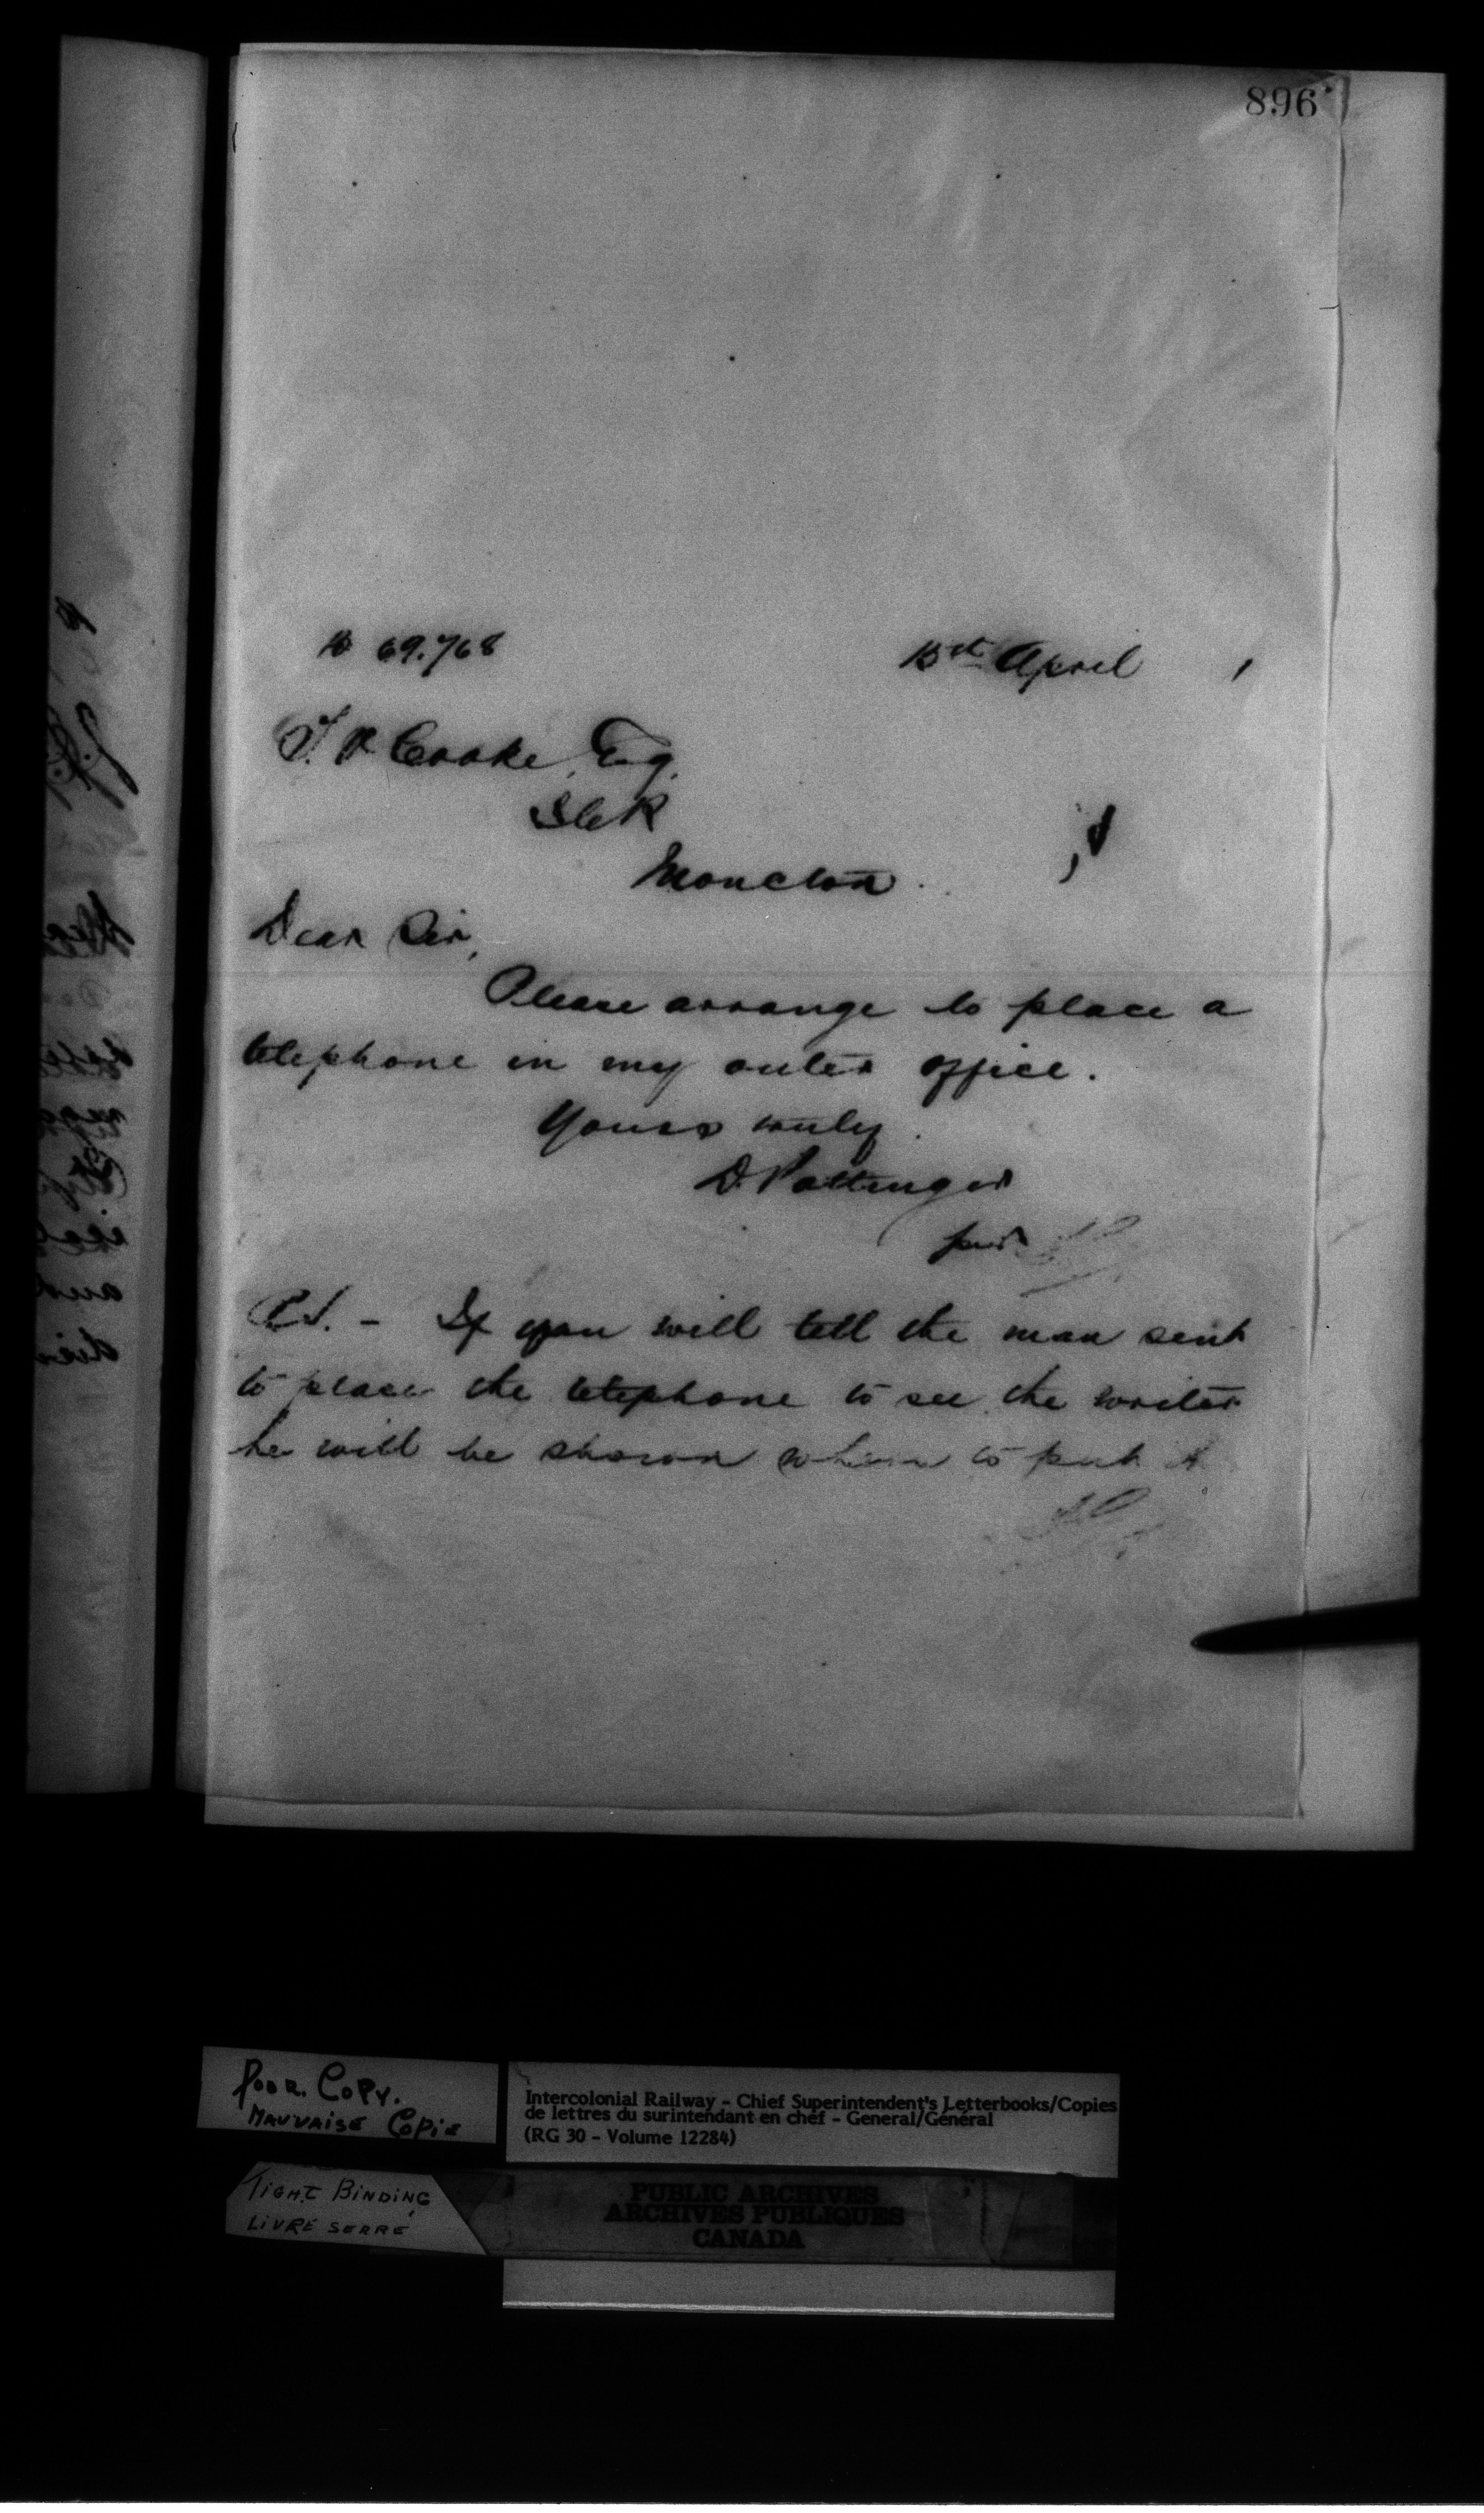 896
69.768 15th April
Cooke, Esq.
Moncton
Dear Sir,
Please arrange to place a
telephone in my outer office.
Yours truly
D. Pottinger
per
P.S. - If you will tell the man sent
to place the telephone to see the writer
he will be shown where to put it
Poor. Copy.
Mauvaise Copie
Intercolonial Railway - Chief Superintendent's Letterbooks/Copies
de lettres du surintendant en chef - General/Général
(RG 30 - Volume 12284)
Tight Binding
Livre serré
PUBLIC ARCHIVES
ARCHIVES PUBLIQUES
CANADA